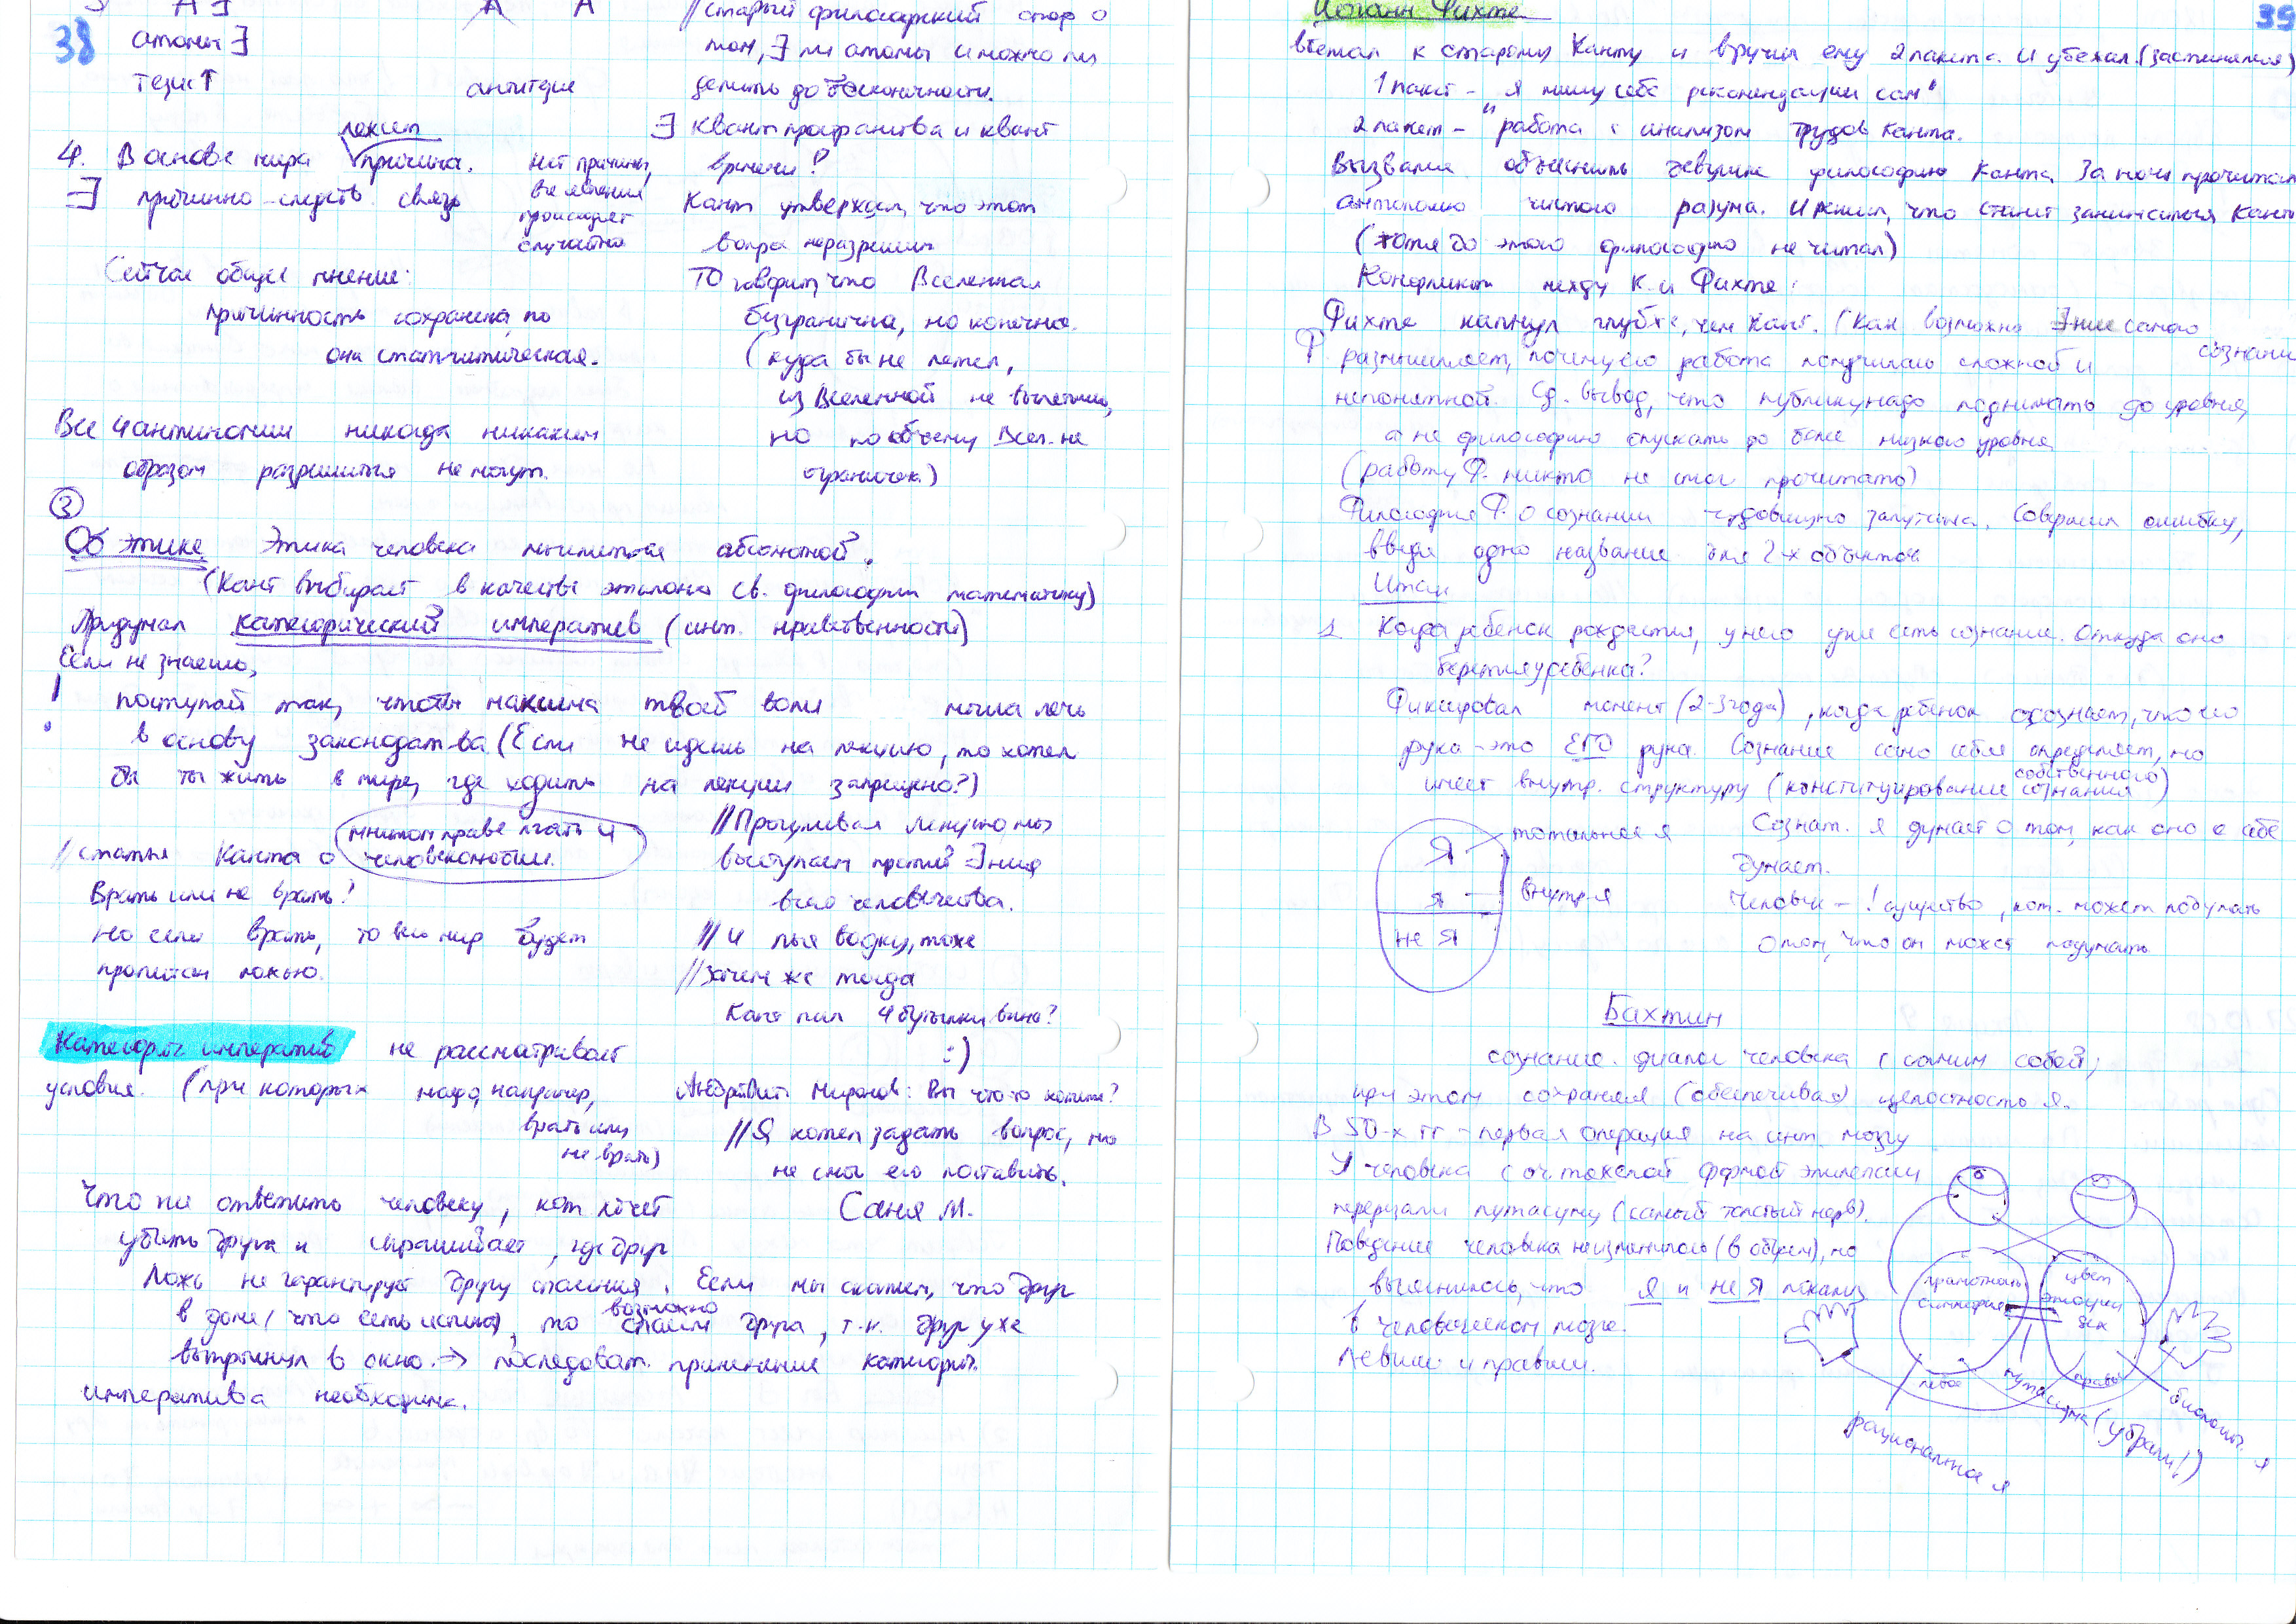 38
атомы ∃
тезис↑
антитезис
//старый философский спор о
том, ∃ ли атомы и можно ли
делить до бесконечности.
∃ квант пространства и квант
времени?
Кант утверждал, что этот
вопрос неразрешим
ТО говорит, что Вселенная
безгранична, но конечна.
(куда бы не летел,
из Вселенной не вылетишь,
но по объему Всел. не
огранич.)
лежит
4. В основе мира причина.
∃ причинно-следств. связь
нет причины,
все явления
происходят
случайно
Сейчас общее мнение:
причинность сохранена, но
она статистическая.
Все 4 антиномии никогда никаким
образом разрешиться не могут.
③
Об этике. Этика человека мыслится абсолютной.
(Кант выбирает в качестве эталона св. философии математику)
Придумал категорический императив (инт. нравственности)
Если не знаешь,
! поступай так, чтобы максима твоей воли могла лечь
в основу законодат-ва (Если не идешь на лекцию, то хотел
бы ты жить в мире, где ходить на лекции запрещено?)
//статья Канта о мнимом праве лгать и
человеколюбии.
Врать или не врать?
Но если врать, то весь мир будет
пропитан ложью.
//Прогуливая лекцию мы
выступаем против ∃ния
всего человечества.
//и пья водку, тоже
//зачем же тогда
Кант пил 4 бутылки вина?
:)
Категорич. императив не рассматривает
условия. (при которых надо, например,
врать или
не врать)
Миронов: Вы что-то хотите?
//Я хотел задать вопрос, но
не смог его поставить.
Саня М.
Что ли ответить человеку, кот. хочет
убить друга и спрашивает, где друг
Ложь не гарантирует другу спасения. Если мы скажем, что друг
в доме (что есть истина), то возможно спасем друга, т.к. друг уже
выпрыгнул в окно. → последоват. применение категорич.
императива необходимо.
39
Иоганн Фихте
вбежал к старому Канту и вручил ему 2 пакета. И убежал. (застеснялся)
1 пакет - "я пишу себе рекомендации сам"
2 пакет - "работа с анализом трудов Канта.
Вызвался объяснить девушке философию Канта. За ночь прочитал
антиномию чистого разума. И решил, что станет заниматься Кантом
(хотя до этого философию не читал)
Конфликт между К. и Фихте:
Фихте капнул глубже, чем Кант. (Как возможно ∃ние само
сознания
Ф размышляет, почему его работа получилась сложной и
непонятной. Сд. вывод, что публику надо поднимать до уровня,
а не философию опускать до более низкого уровня
(работу Ф. никто не смог прочитать)
Философия Ф. о сознании чудовищно запутана. Совершил ошибку,
введя одно название для 2-х объектов
Итак
1. Когда ребенок рождается, у него уже есть сознание. Откуда оно
берется у ребенка?
Фиксировал момент (2-3 года), когда ребенок осознает, что его
рука - это ЕГО рука. Сознание само себя определяет, но
имеет внутр. структуру (конституирование собственного сознания)
Я
тотальное я
я
внутр-я
не Я
Сознат. я думает о том, как оно о себе
думает.
Человек - ! существо, кот. может подумать
о том, что он может подумать.
Бахтин
сознание. диалог человека с самим собой,
при этом сохраняя (обеспечивая) целостность я.
В 50-х гг - первая операция на мозгу
У человека с оч. тяжелой формой эпилепсии
перерезали путасуму (самый толстый нерв).
Поведение человека не изменилось (в общем), но
выяснилось, что я и не я локализ.
в человеческом мозге.
Левши и правши.
грамотность
симметрия
цвет
эмоции
левое
правое
путасума (убрали!)
рациональное я
биологич. я